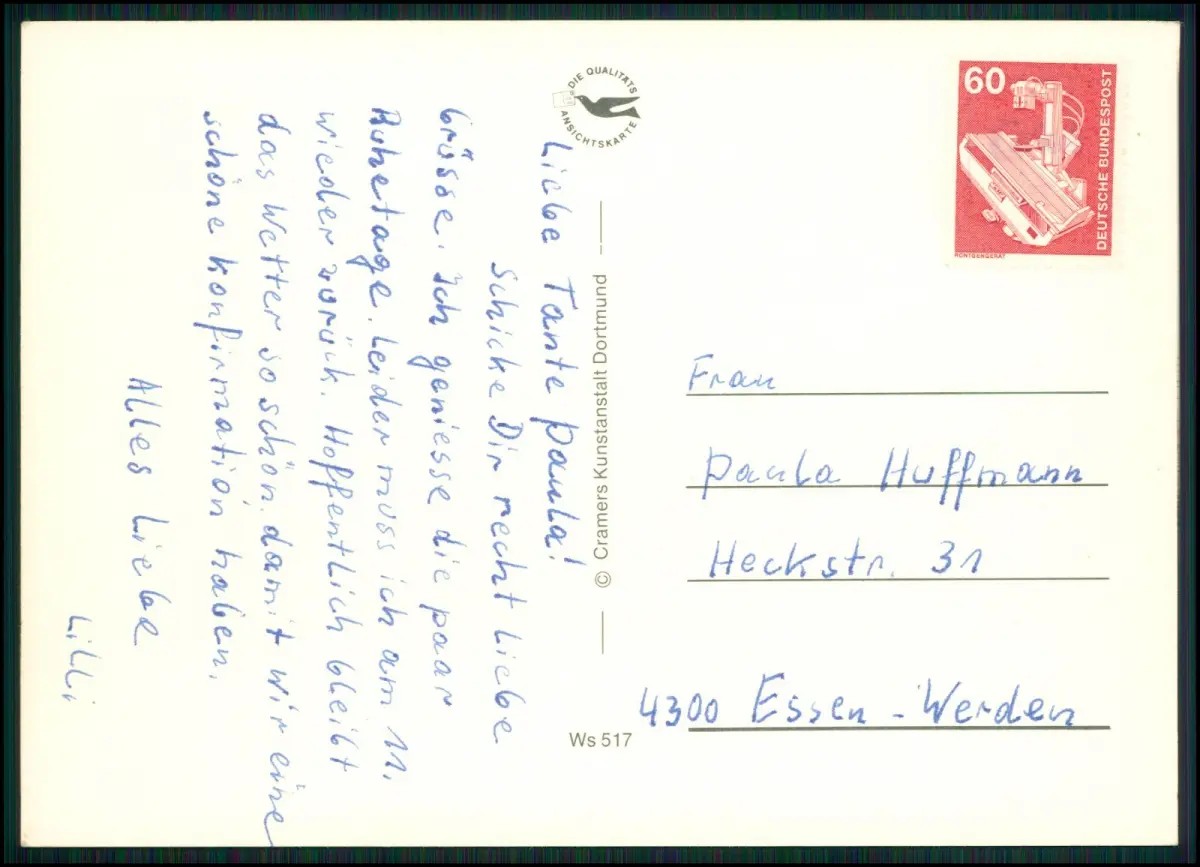 Liebe Tante Paula!
Schicke Dir recht liebe
Grüsse. Ich geniesse die paar
Ruhetage. Leider muss ich am 11.
wieder zurück. Hoffentlich bleibt
das Wetter so schön, damit wir eine
schöne Konfirmation haben.
Alles Liebe
Lilli
DIE QUALITÄTS
ANSICHTSKARTE
© Cramers Kunstanstalt Dortmund
Ws 517
60
DEUTSCHE BUNDESPOST
RÖNTGENGERÄT
Frau
Paula Huffmann
Heckstr. 31
4300 Essen-Werden